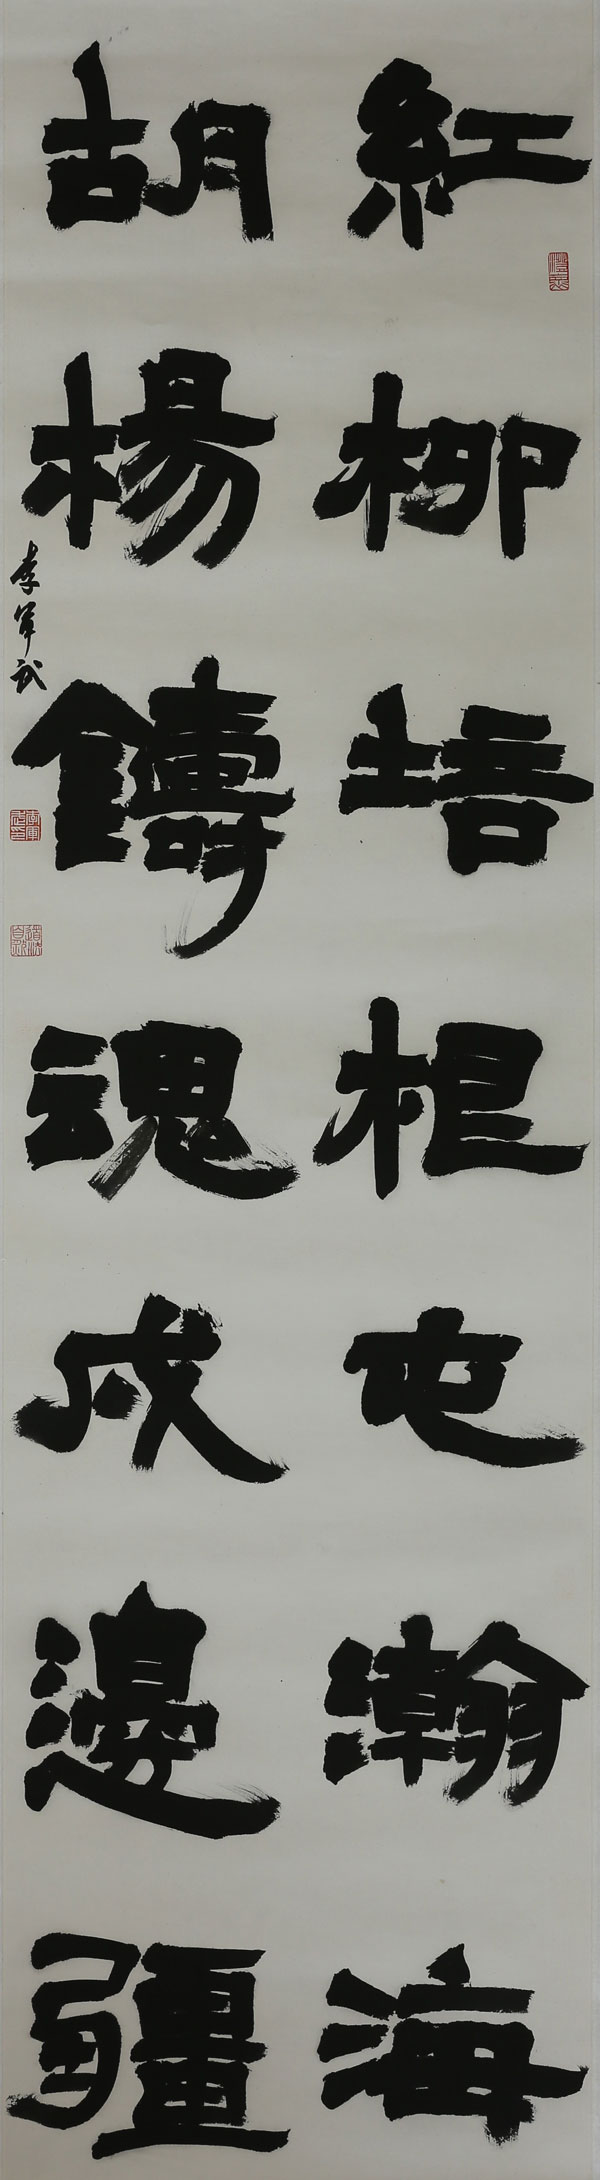 紅柳培根屯瀚海
胡楊鑄魂戍邊疆
李軍武